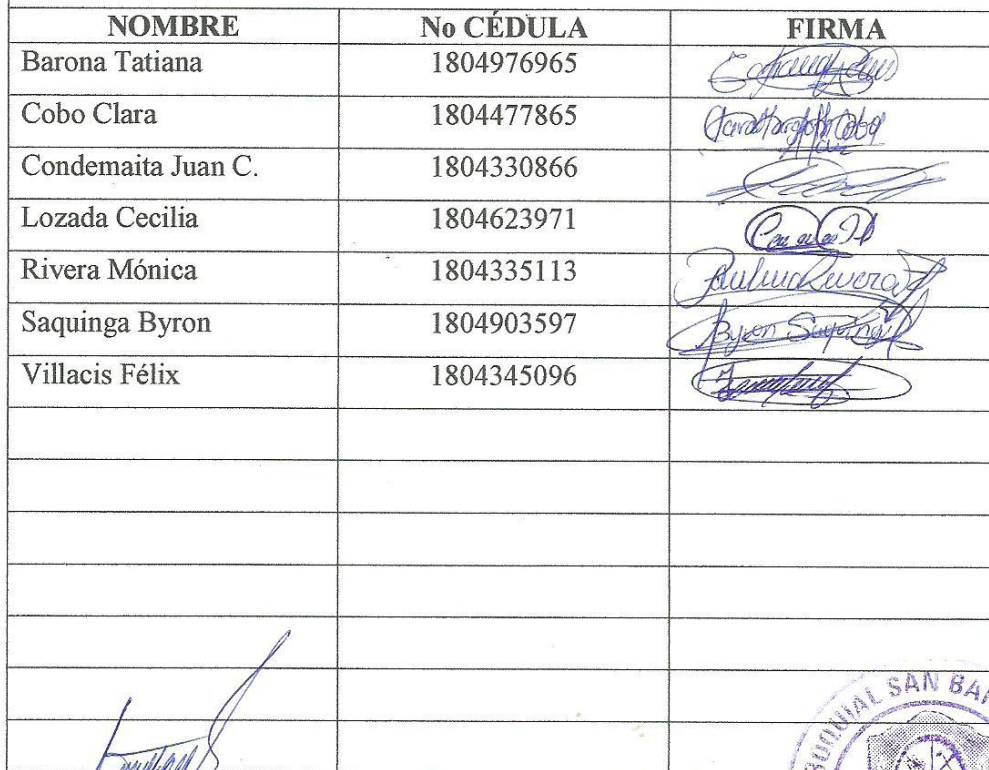 NOMBRE No CÉDULA FIRMA
Barona Tatiana 1804976965
Cobo Clara 1804477865 Cobo
Condemaita Juan C. 1804330866
Lozada Cecilia 1804623971
Rivera Mónica 1804335113 Rivera
Saquinga Byron 1804903597 Byron Saquinga
Villacis Félix 1804345096
SAN BA